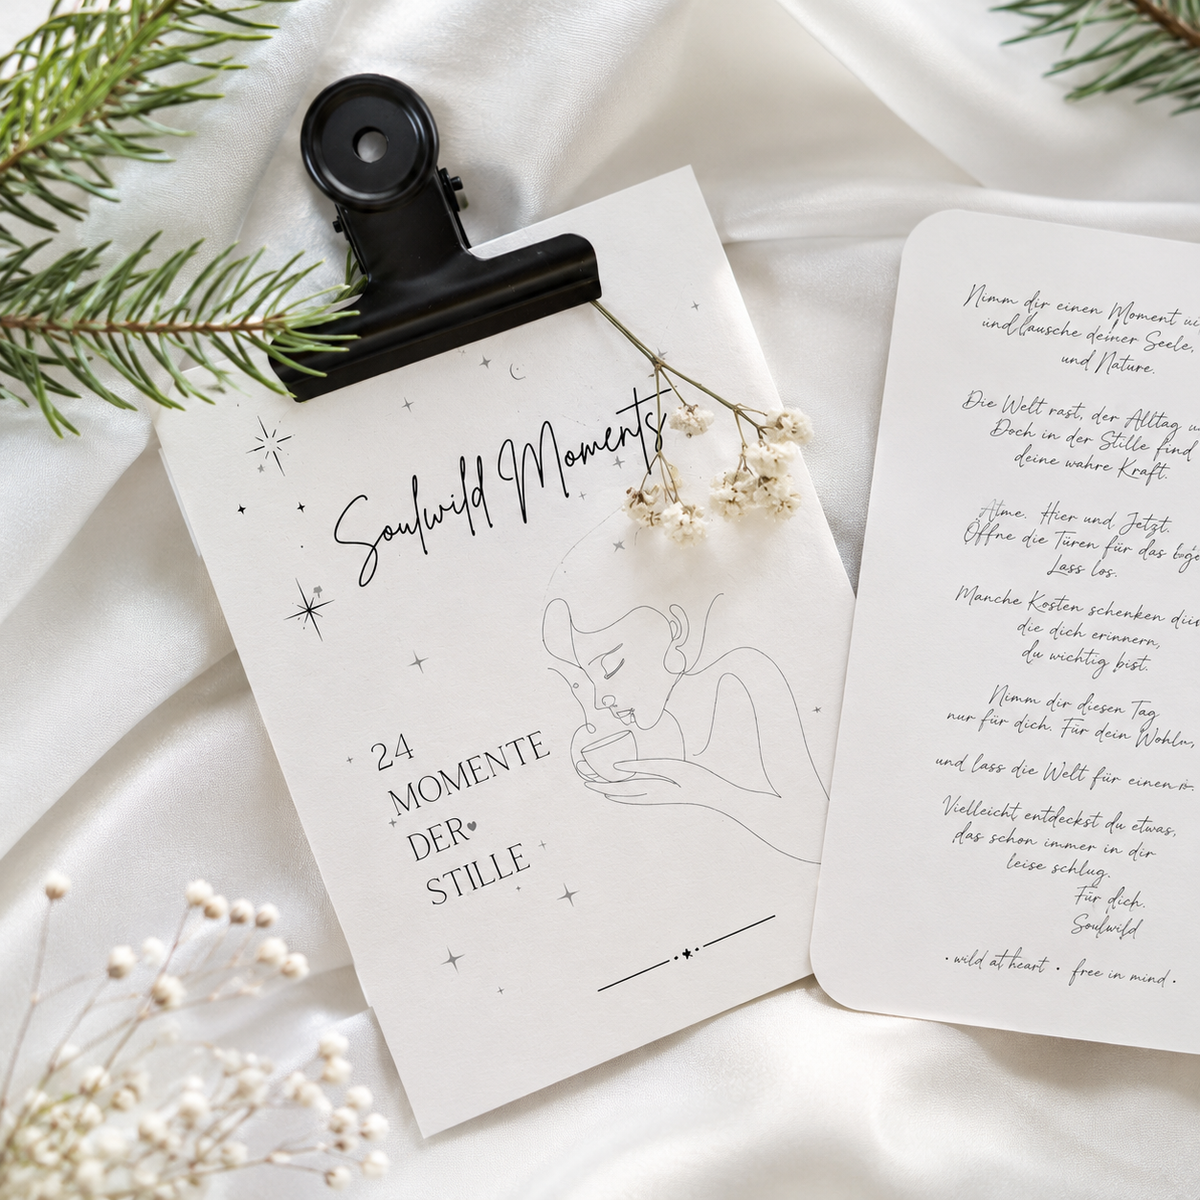 Soulwild Moments
24
MOMENTE
DER
STILLE
Nimm dir einen Moment
und lausche deiner Seele,
und Nature.
Die Welt rast, der Alltag
Doch in der Stille find
deine wahre Kraft.
Atme. Hier und Jetzt.
Öffne die Türen für das
Lass los.
Manche Kosten schenken
die dich erinnern,
du wichtig bist.
Nimm dir diesen Tag
nur für dich. Für dein
und lass die Welt für
Vielleicht entdeckst du etwas,
das schon immer in dir
leise schlug.
Für dich.
Soulwild
· wild at heart · free in mind ·